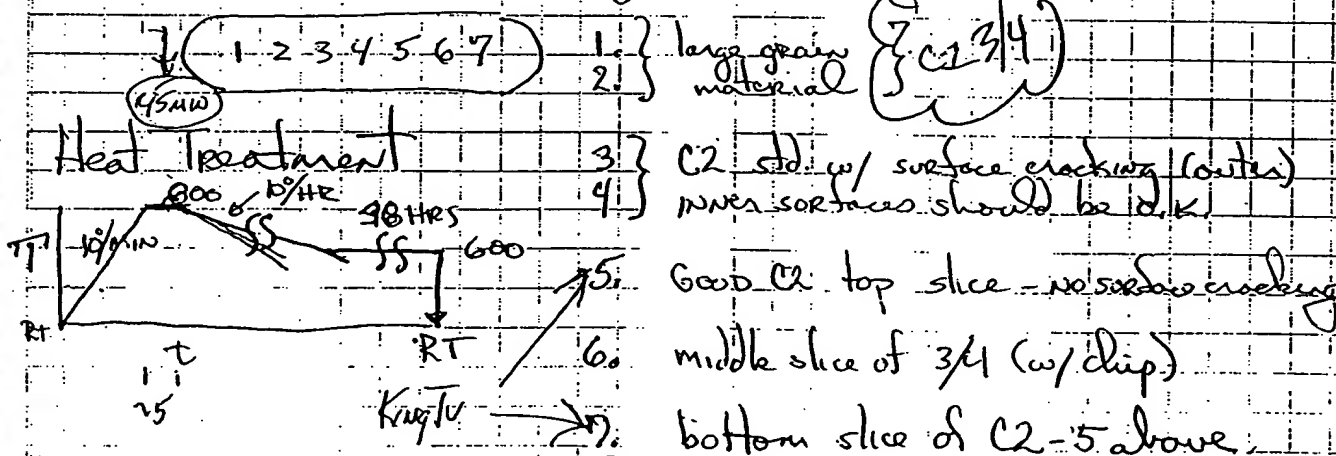 1 2 3 4 5 6 7
1. } large grain
2. } material
C2 3/4
Heat Treatment
3 } C2 std. w/ surface cracking (outer)
4 } INNER surfaces should be O.K.
800
10°/HR
10°/MIN
48 HRS
600
T
RT
t
RT
~5
5. GOOD C2 top slice - NO surface cracking
6. middle slice of 3/4 (w/ chip)
7. bottom slice of C2-5 above.